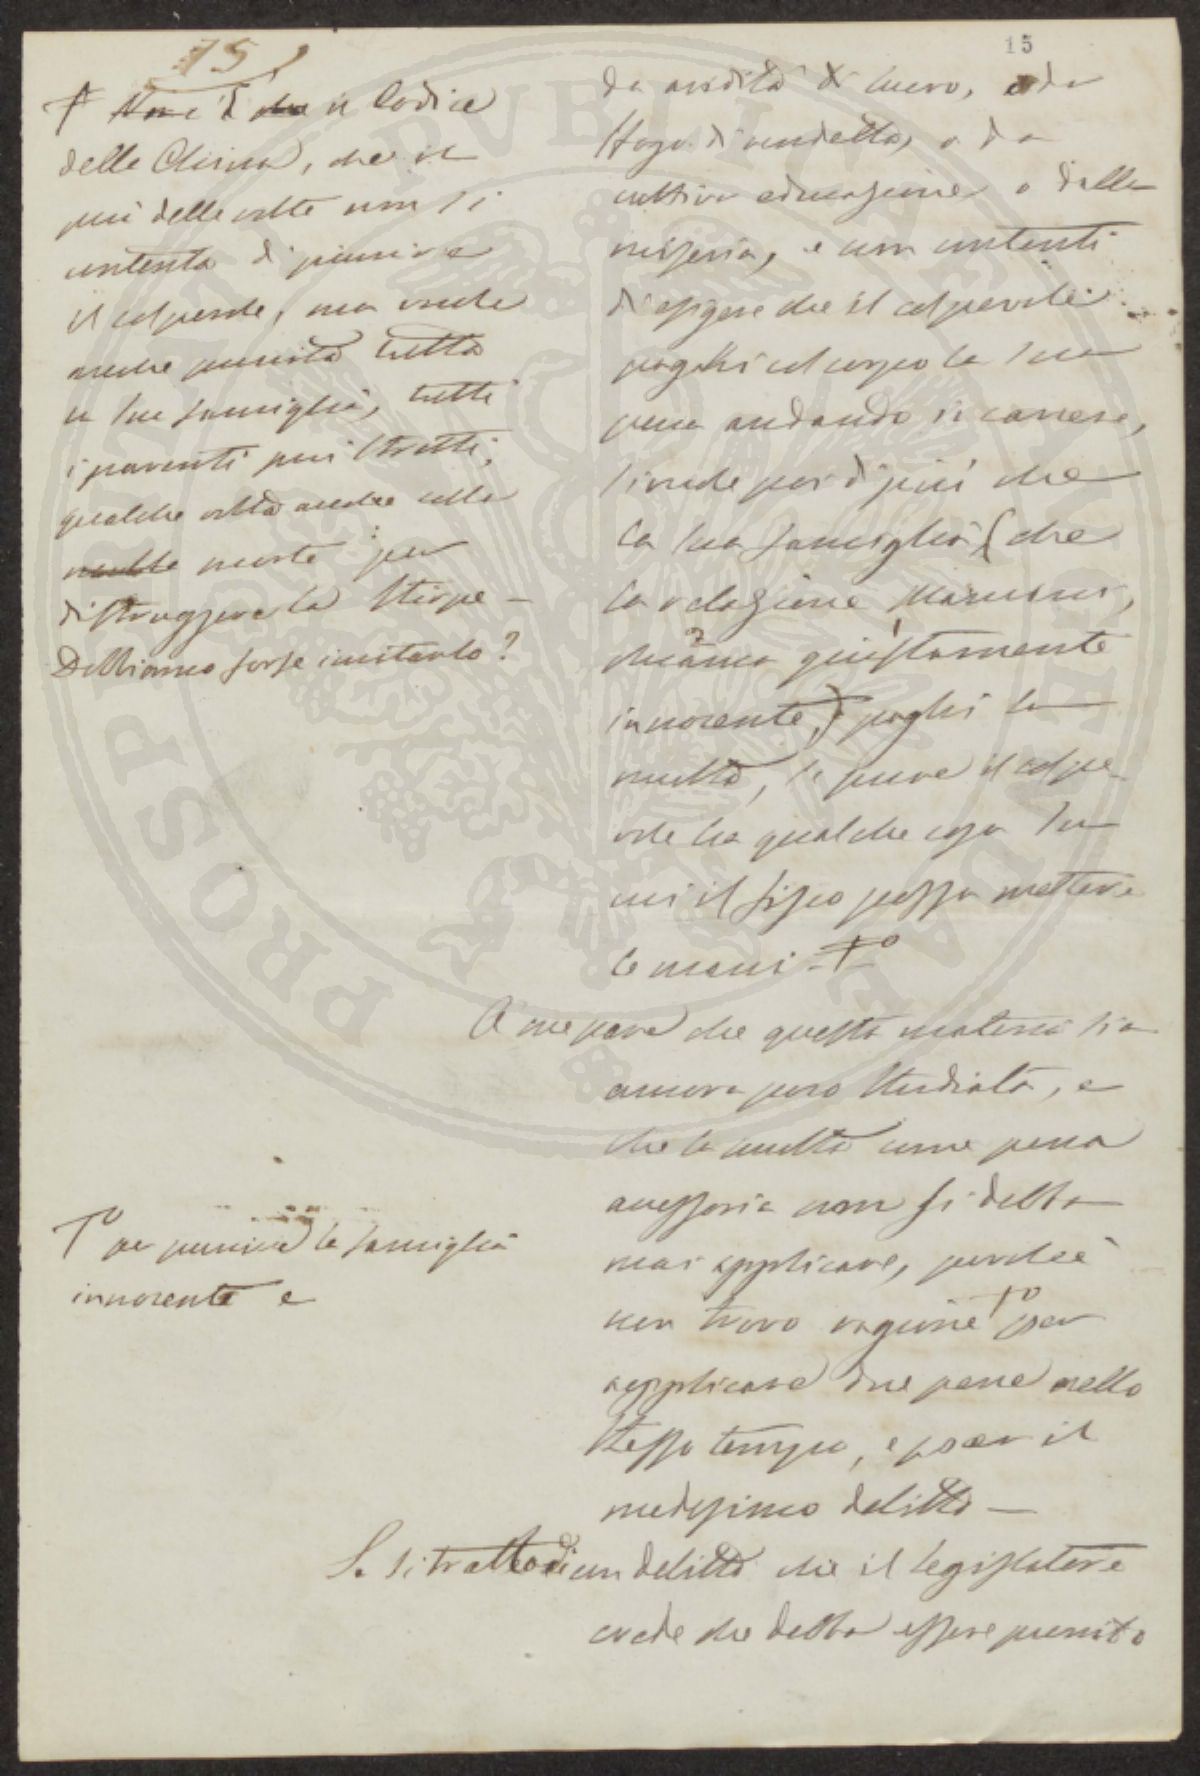 15
15
da avidità di lucro, o da
sfogo di vendetta, o da
cattiva educazione o dalla
miseria, e non contenti
di esigere che il colpevole
paghi col corpo la sua
pena andando in carcere,
si vuole poi di più che
la sua famiglia (che
la relazione Mancini,
chiama giustamente
innocente,) paghi la
multa, se pure il colpe-
vole ha qualche cosa su
cui il fisco possa mettere
le mani -
A me pare che questa materia sia
ancora poco studiata, e
che la multa come pena
accessoria non si debba
mai applicare, perchè
non trovo ragione per
applicare due pene nello
stesso tempo, e per il
medesimo delitto -
Se si tratta di un delitto che il legislatore
crede che debba essere punito
Non è il Codice
della China, che il
più delle volte non si
contenta di punire
il colpevole, ma vuole
anche punita tutta
la sua famiglia, tutti
i parenti più stretti,
qualche volta anche colla
morte per
distruggere la stirpe -
Dobbiamo forse imitarlo?
per punire la famiglia
innocente e
PROSPERITATI PVBLICAE AVGENDAE